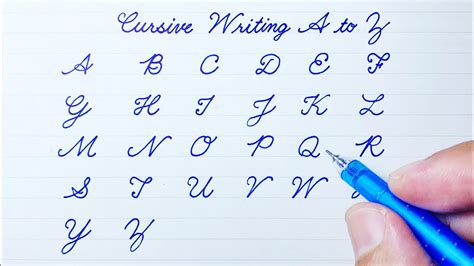 Cursive Writing A to Z
A B C D E F
G H I J K L
M N O P Q R
S T U V W
Y Z